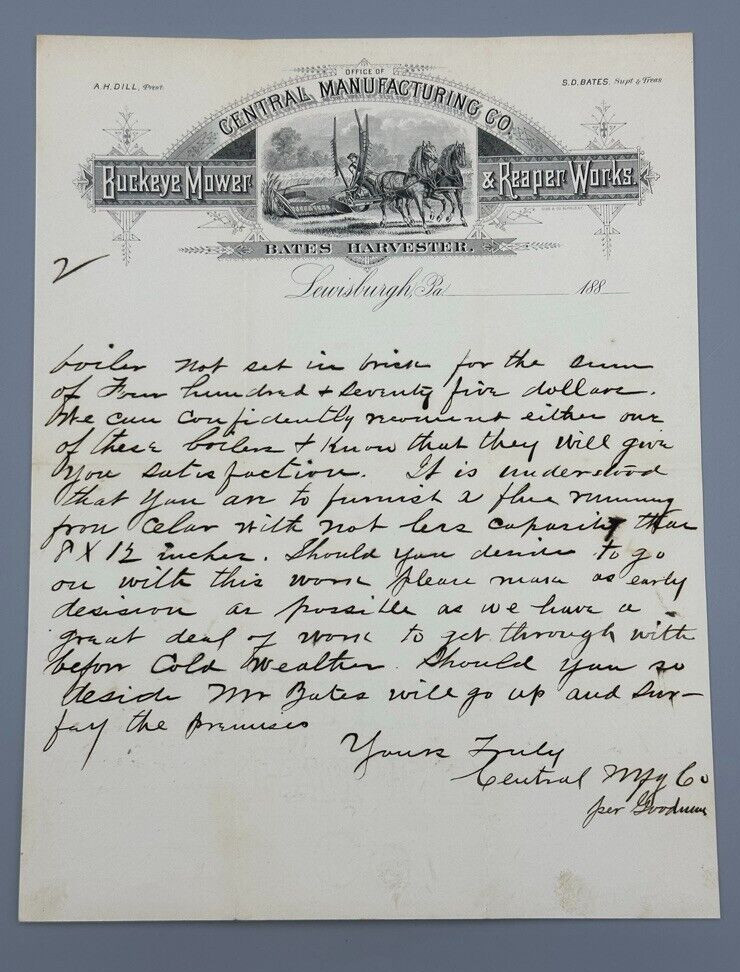 A.H. DILL, Prest.
OFFICE OF
S.D. BATES. Supt & Treas
CENTRAL MANUFACTURING CO.
BUCKEYE MOWER & REAPER WORKS.
BATES HARVESTER.
2
Lewisburgh, Pa 188
boiler not set in brick for the sum
of Four hundred & seventy five dollars.
We can confidently recoment either one
of these boilers & know that they will give
you satisfaction. It is understood
that you are to furnish a flue running
from celar with not less capacity than
8 X 12 inches. Should you deside to go
on with this work please make as early
desision as possible as we have a
great deal of work to get through with
before Cold Weather. Should you so
deside Mr Bates will go up and Sur-
fay the premises
Yours Truly
Central Mfg Co
per Goodman